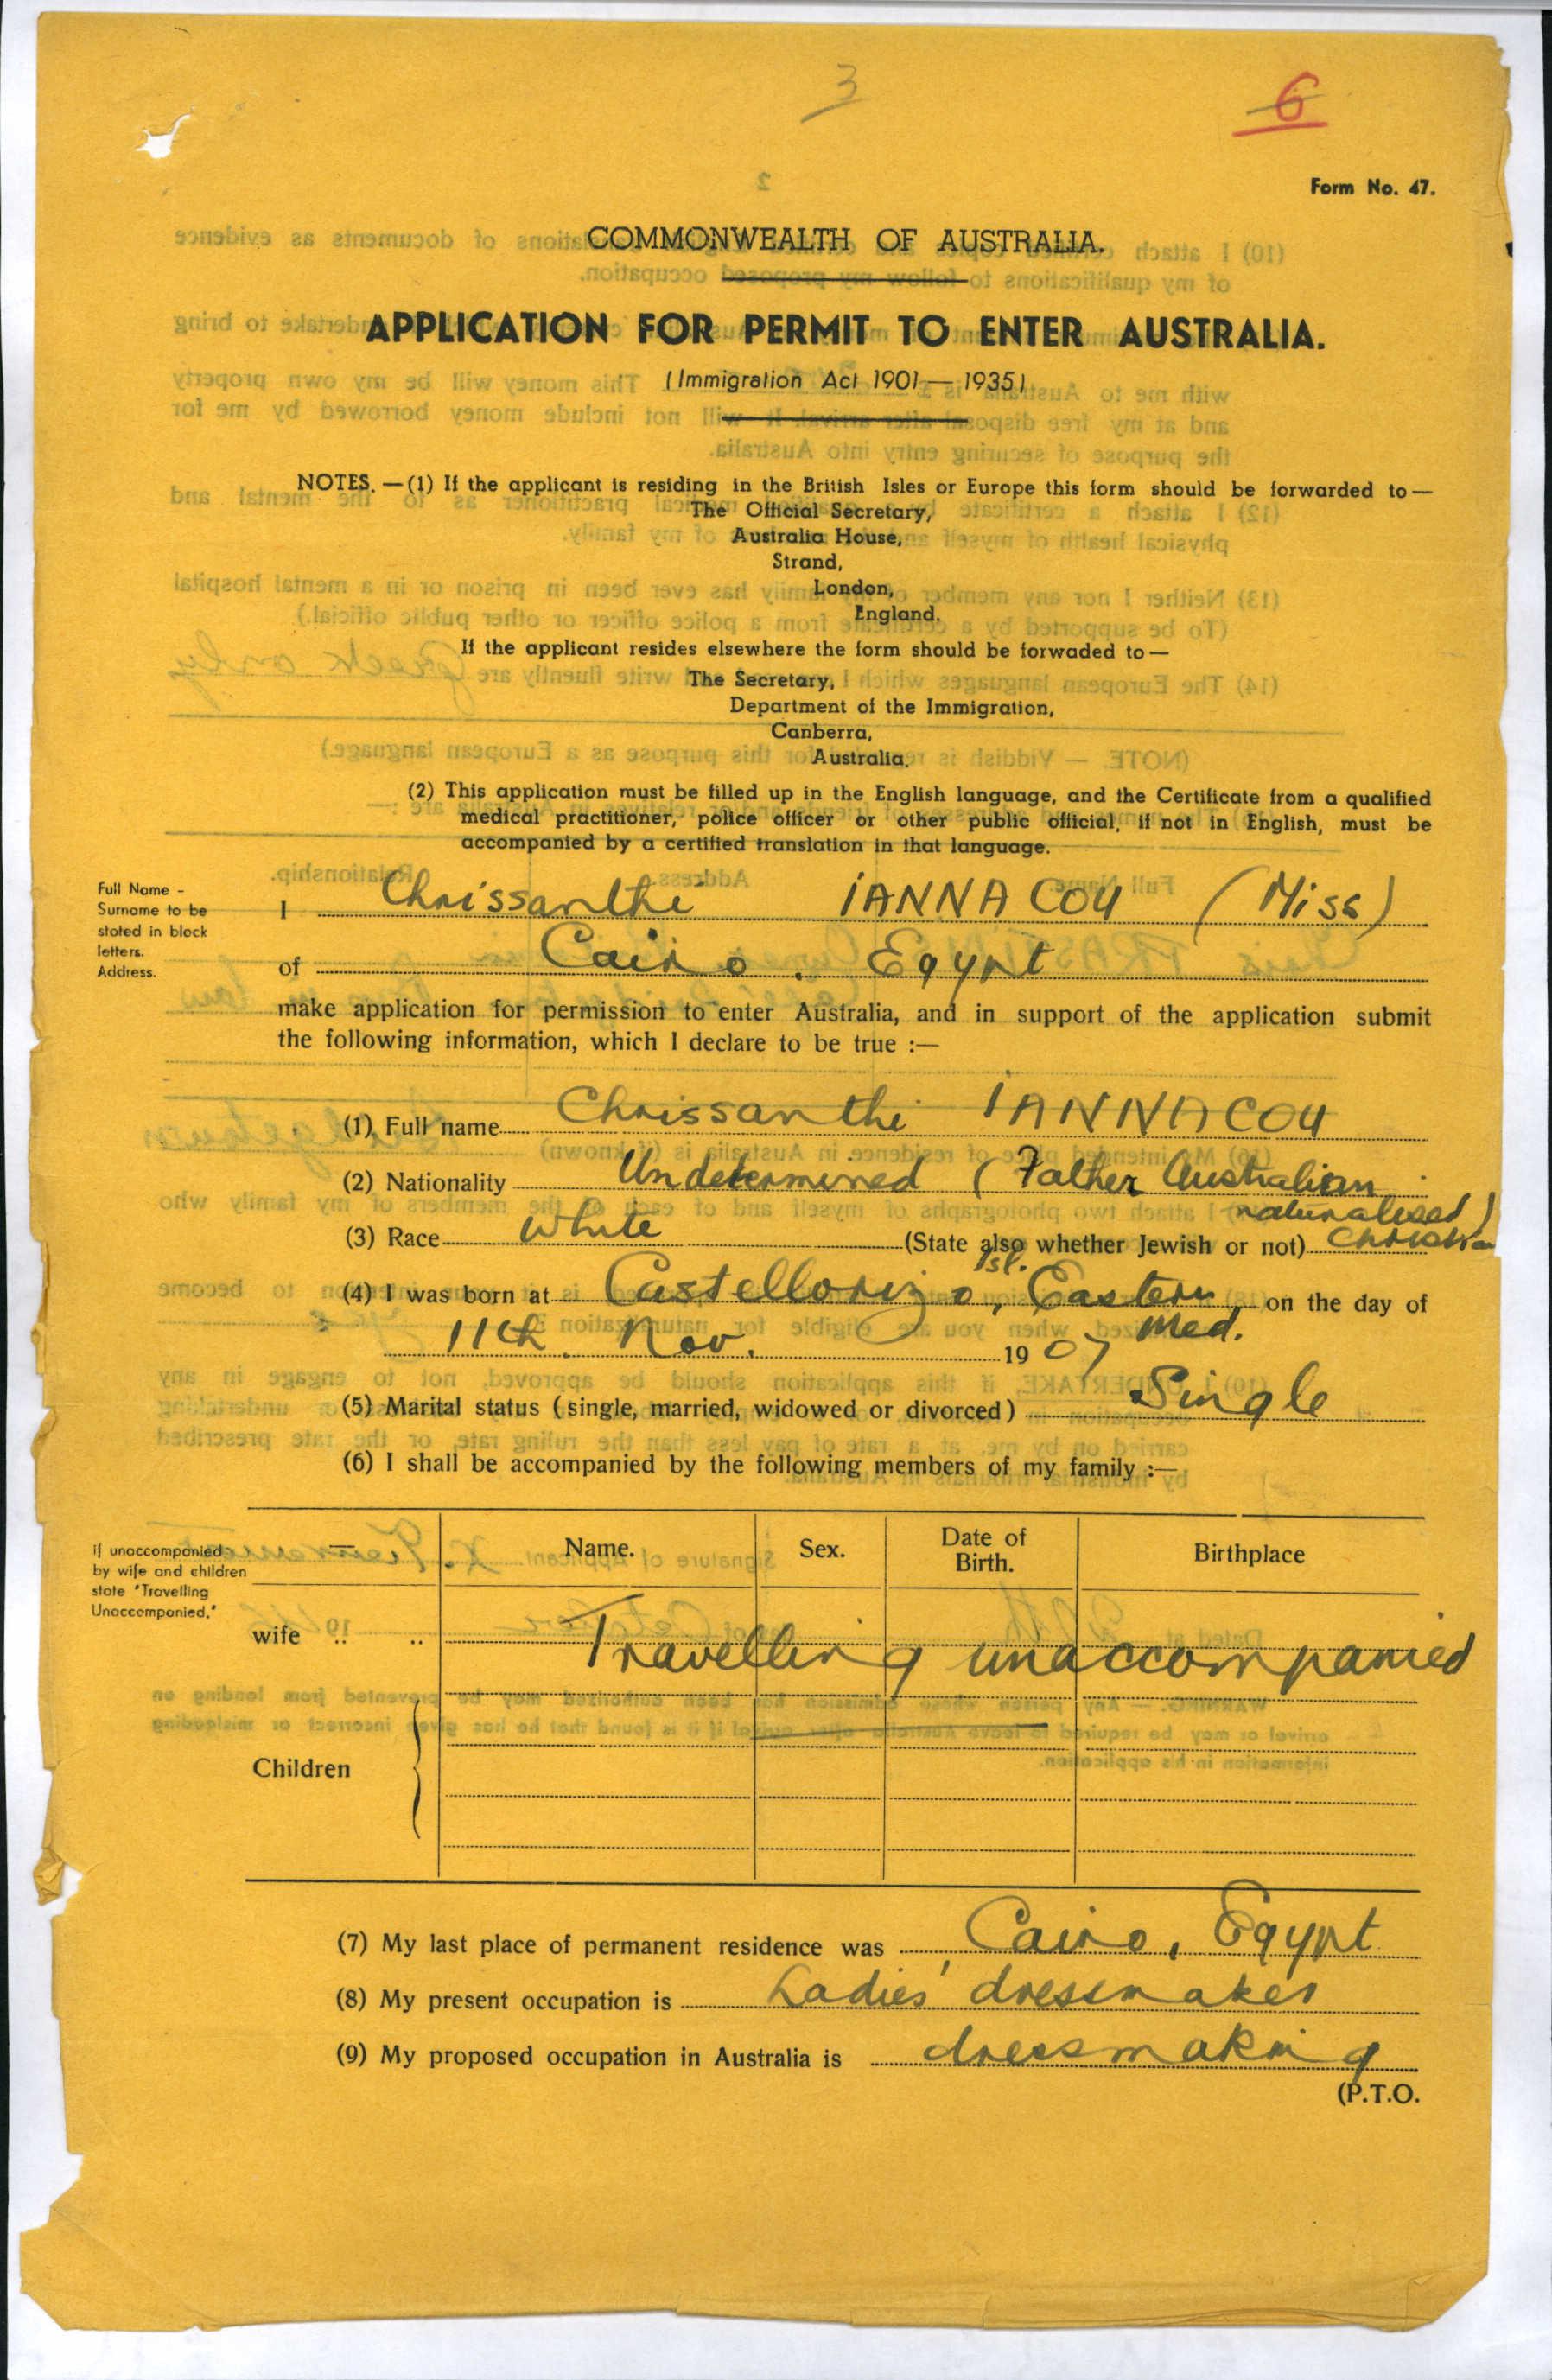 3
6
Form No. 47.
COMMONWEALTH OF AUSTRALIA.
APPLICATION FOR PERMIT TO ENTER AUSTRALIA.
(Immigration Act 1901—1935)
NOTES. —(1) If the applicant is residing in the British Isles or Europe this form should be forwarded to—
The Official Secretary,
Australia House,
Strand,
London,
England.
If the applicant resides elsewhere the form should be forwaded to—
The Secretary,
Department of the Immigration,
Canberra,
Australia.
(2) This application must be filled up in the English language, and the Certificate from a qualified
medical practitioner, police officer or other public official, if not in English, must be
accompanied by a certified translation in that language.
Full Name -
Surname to be
stoted in block
letters.
Address.
I Chrissanthi IANNACOU (Miss)
of Cairo. Egypt
make application for permission to enter Australia, and in support of the application submit
the following information, which I declare to be true :—
(1) Full name Chrissanthi IANNACOU
(2) Nationality Undetermined (Father Australian
naturalised)
(3) Race White (State also whether Jewish or not) Christian
(4) I was born at Castellorizo Isl., Eastern Med. on the day of
11th. Nov. 1907
(5) Marital status (single, married, widowed or divorced) Single
(6) I shall be accompanied by the following members of my family :—
If unaccompanied
by wife and children
state "Travelling
Unaccompanied."
— Name. Sex. Date of Birth. Birthplace
wife .. .. Travelling unaccompanied
Children
(7) My last place of permanent residence was Cairo, Egypt
(8) My present occupation is Ladies' dressmaker
(9) My proposed occupation in Australia is dressmaking
(P.T.O.